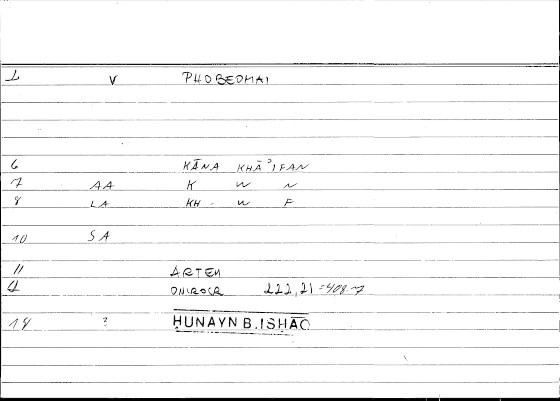 1 V PHOBEOMAI
6 KĀNA KHĀʾIFAN
7 AA K W N
8 LA KH W F
10 SA
11 ARTEM
ONIROCR 222,21 = 408-7
14 ? ḤUNAYN B. ISḤĀQ